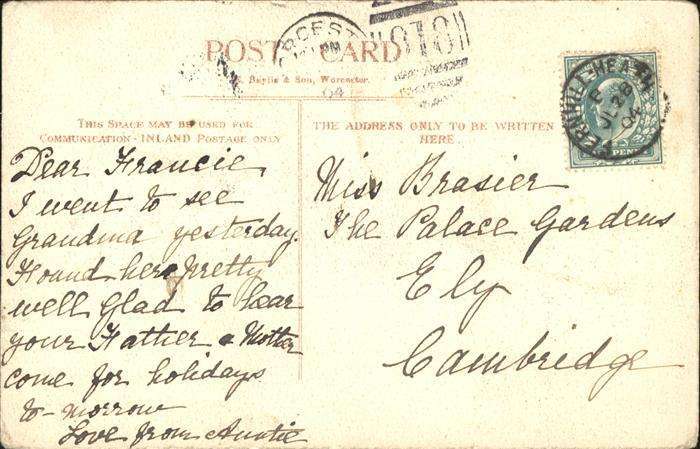 POST CARD
WORCESTER
PM
04
910
Baylis & Son, Worcester.
THIS SPACE MAY BE USED FOR
COMMUNICATION - INLAND POSTAGE ONLY
THE ADDRESS ONLY TO BE WRITTEN
HERE.
FERNHILL-HEATH
E
JL 28
04
PENNY
Dear Francie.
I went to see
Grandma yesterday.
Found her pretty
well Glad to hear
your Father & Mother
come for holidays
to-morrow
Love from Auntie
Miss Brasier
The Palace Gardens
Ely
Cambridge